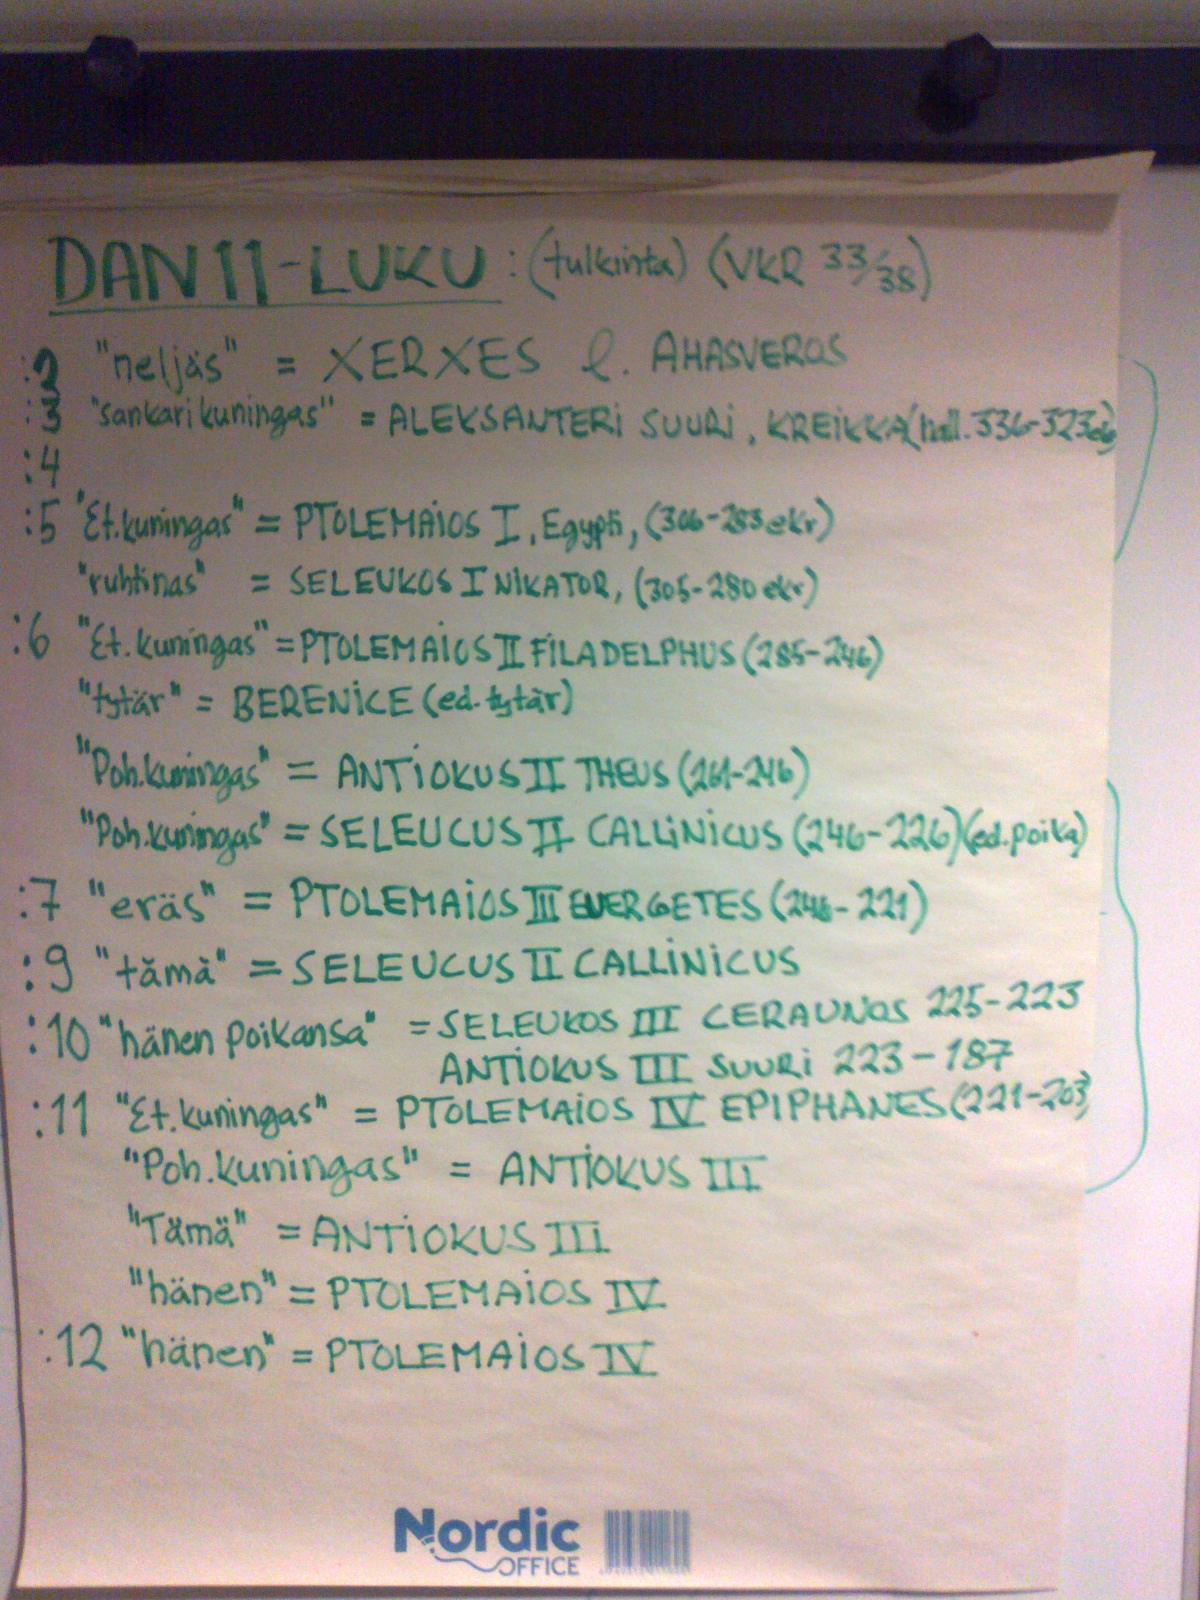 DAN 11-LUKU : (tulkinta) (VKR 33/38)
:2 "neljäs" = XERXES l. AHASVEROS
:3 "sankarikuningas" = ALEKSANTERI SUURI, KREIKKA (hall. 336-323 ekr)
:4
:5 "Et.kuningas" = PTOLEMAIOS I, Egypti, (306-283 ekr)
"ruhtinas" = SELEUKOS I NIKATOR, (305-280 ekr)
:6 "Et.kuningas" = PTOLEMAIOS II FILADELPHUS (285-246)
"tytär" = BERENICE (ed. tytär)
"Poh.kuningas" = ANTIOKUS II THEUS (261-246)
"Poh.kuningas" = SELEUCUS II CALLINICUS (246-226) (ed. poika)
:7 "eräs" = PTOLEMAIOS III EUERGETES (246-221)
:9 "tämä" = SELEUCUS II CALLINICUS
:10 "hänen poikansa" = SELEUKOS III CERAUNOS 225-223
ANTIOKUS III SUURI 223-187
:11 "Et.kuningas" = PTOLEMAIOS IV EPIPHANES (221-203)
"Poh.kuningas" = ANTIOKUS III
"Tämä" = ANTIOKUS III
"hänen" = PTOLEMAIOS IV
:12 "hänen" = PTOLEMAIOS IV
Nordic
OFFICE